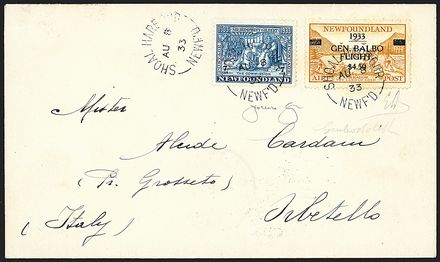 SHOAL HARBOUR
AU 8
33
NEWF'D
1933
NEWFOUNDLAND
NEWFOUNDLAND
1933
GEN. BALBO
FLIGHT
$4.50
AIR POST
SHOAL
AU 8
33
NEWF'D
Mister
Alcide Cardani
(Pr. Grosseto)
(Italy) Orbetello